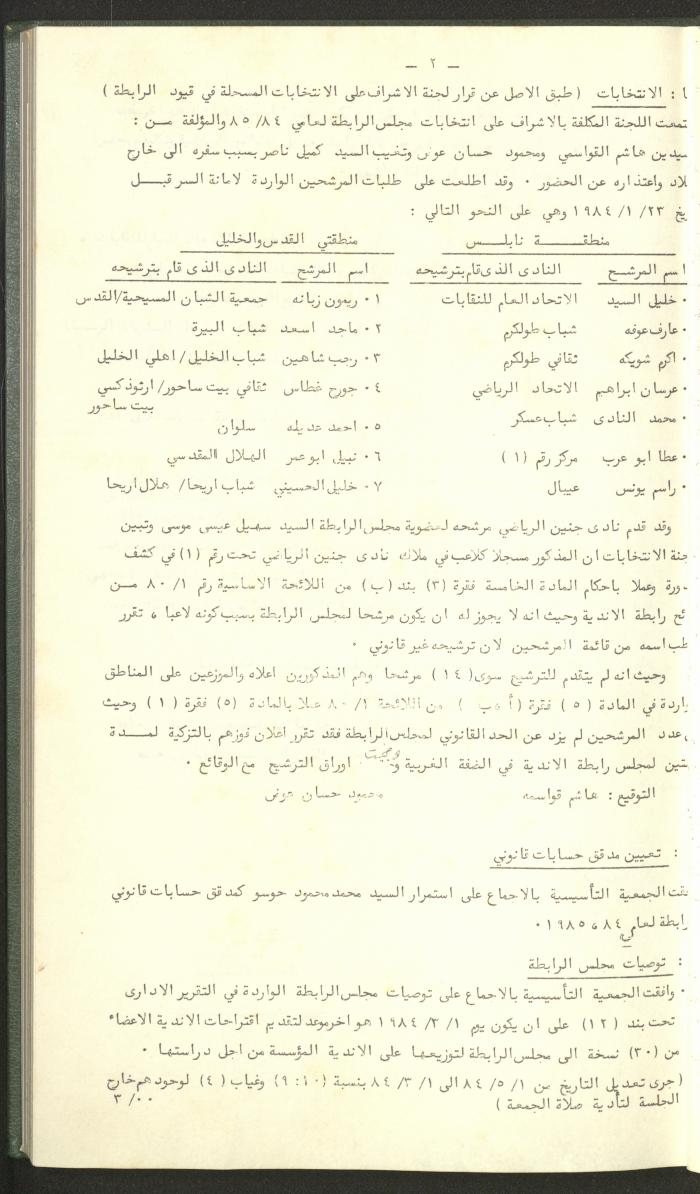 — ٢ —
ا : الانتخابات ( طبق الاصل عن قرار لجنة الاشراف على الانتخابات المسجلة في قيود الرابطة )
تمعت اللجنة المكلفة بالاشراف على انتخابات مجلس الرابطة لعامي ٨٤/ ٨٥ والمؤلفة مــن :
سيدين هاشم القواسمي ومحمود حسان عوض وتغيب السيد كميل ناصر بسبب سفره الى خارج
بلاد واعتذاره عن الحضور ٠ وقد اطلعت على طلبات المرشحين الواردة لامانة السر قبــل
يخ ٢٣/ ١/ ١٩٨٤ وهي على النحو التالي :
منطقــــة نابلــــس منطقتي القدس والخليل
اسم المرشــح النادى الذى قام بترشيحه اسم المرشح النادى الذى قام بترشيحه
٠ خليل السيد الاتحاد العام للنقابات ١٠ ريمون زبانه جمعية الشبان المسيحية/القدس
٠ عارف عوفه شباب طولكرم ٢٠ ماجد اسعد شباب البيرة
٠ اكرم شويكه ثقافي طولكرم ٣٠ رجب شاهين شباب الخليل/ اهلي الخليل
٠ عرسان ابراهيم الاتحاد الرياضي ٤٠ جورج غطاس ثقافي بيت ساحور/ ارثوذكسي
بيت ساحور
٠ محمد النادى شباب عسكر ٥٠ احمد عديله سلوان
٠ عطا ابو عرب مركز رقم (١) ٦٠ نبيل ابوعمر الهلال المقدسي
٠ راسم يونس عيبال ٧٠ خليل الحسيني شباب اريحا/ هلال اريحا
وقد قدم نادى جنين الرياضي مرشحه لعضوية مجلس الرابطة السيد سهيل عيسى موسى وتبين
جنة الانتخابات ان المذكور مسجلا كلاعب في ملاك نادى جنين الرياضي تحت رقم (١) في كشف
ورة وعملا باحكام المادة الخامسة فقرة (٣) بند (ب) من اللائحة الاساسية رقم ١/ ٨٠ مــن
ئح رابطة الاندية وحيث انه لا يجوز له ان يكون مرشحا لمجلس الرابطة بسبب كونه لاعبا ، تقرر
طب اسمه من قائمة المرشحين لان ترشيحه غير قانوني ٠
وحيث انه لم يتقدم للترشيح سوى (١٤) مرشحا وهم المذكورين اعلاه والموزعين على المناطق
واردة في المادة (٥) فقرة (أ ، ب ) من اللائحة ١/ ٨٠ عملا بالمادة (٥) فقرة (١) وحيث
، عدد المرشحين لم يزد عن الحد القانوني لمجلس الرابطة فقد تقرر اعلان فوزهم بالتزكية لمــدة
نتين لمجلس رابطة الاندية في الضفة الغربية و اوراق الترشيح مع الوقائع ٠
التوقيع : هاشم قواسمه محمود حسان عوض
: تعيين مدقق حسابات قانوني
فقت الجمعية التأسيسية بالاجماع على استمرار السيد محمد محمود حوسو كمدقق حسابات قانوني
رابطة لعامي ٨٤ ، ١٩٨٥ ٠
: توصيات مجلس الرابطة
٠ وافقت الجمعية التأسيسية بالاجماع على توصيات مجلس الرابطة الواردة في التقرير الادارى
تحت بند (١٢) على ان يكون يوم ١/ ٣/ ١٩٨٤ هو اخر موعد لتقديم اقتراحات الاندية الاعضاء
من (٣٠) نسخة الى مجلس الرابطة لتوزيعها على الاندية المؤسسة من اجل دراستها ٠
(جرى تعديل التاريخ من ١/ ٥/ ٨٤ الى ١/ ٣/ ٨٤ بنسبة (١٠ : ٩) وغياب (٤) لوجودهم خارج
الجلسة لتأدية صلاة الجمعة ) ٣/ ٠٠